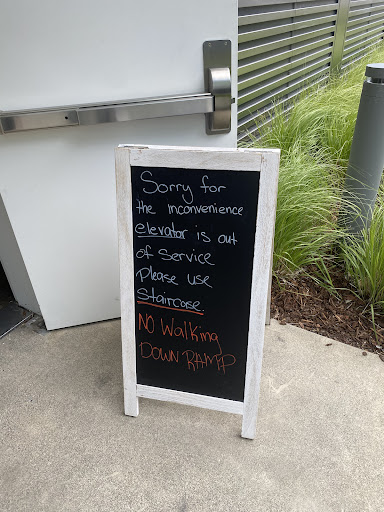 Sorry for
the inconvenience
elevator is out
of service
Please use
Staircase.
NO Walking
DOWN RAMP